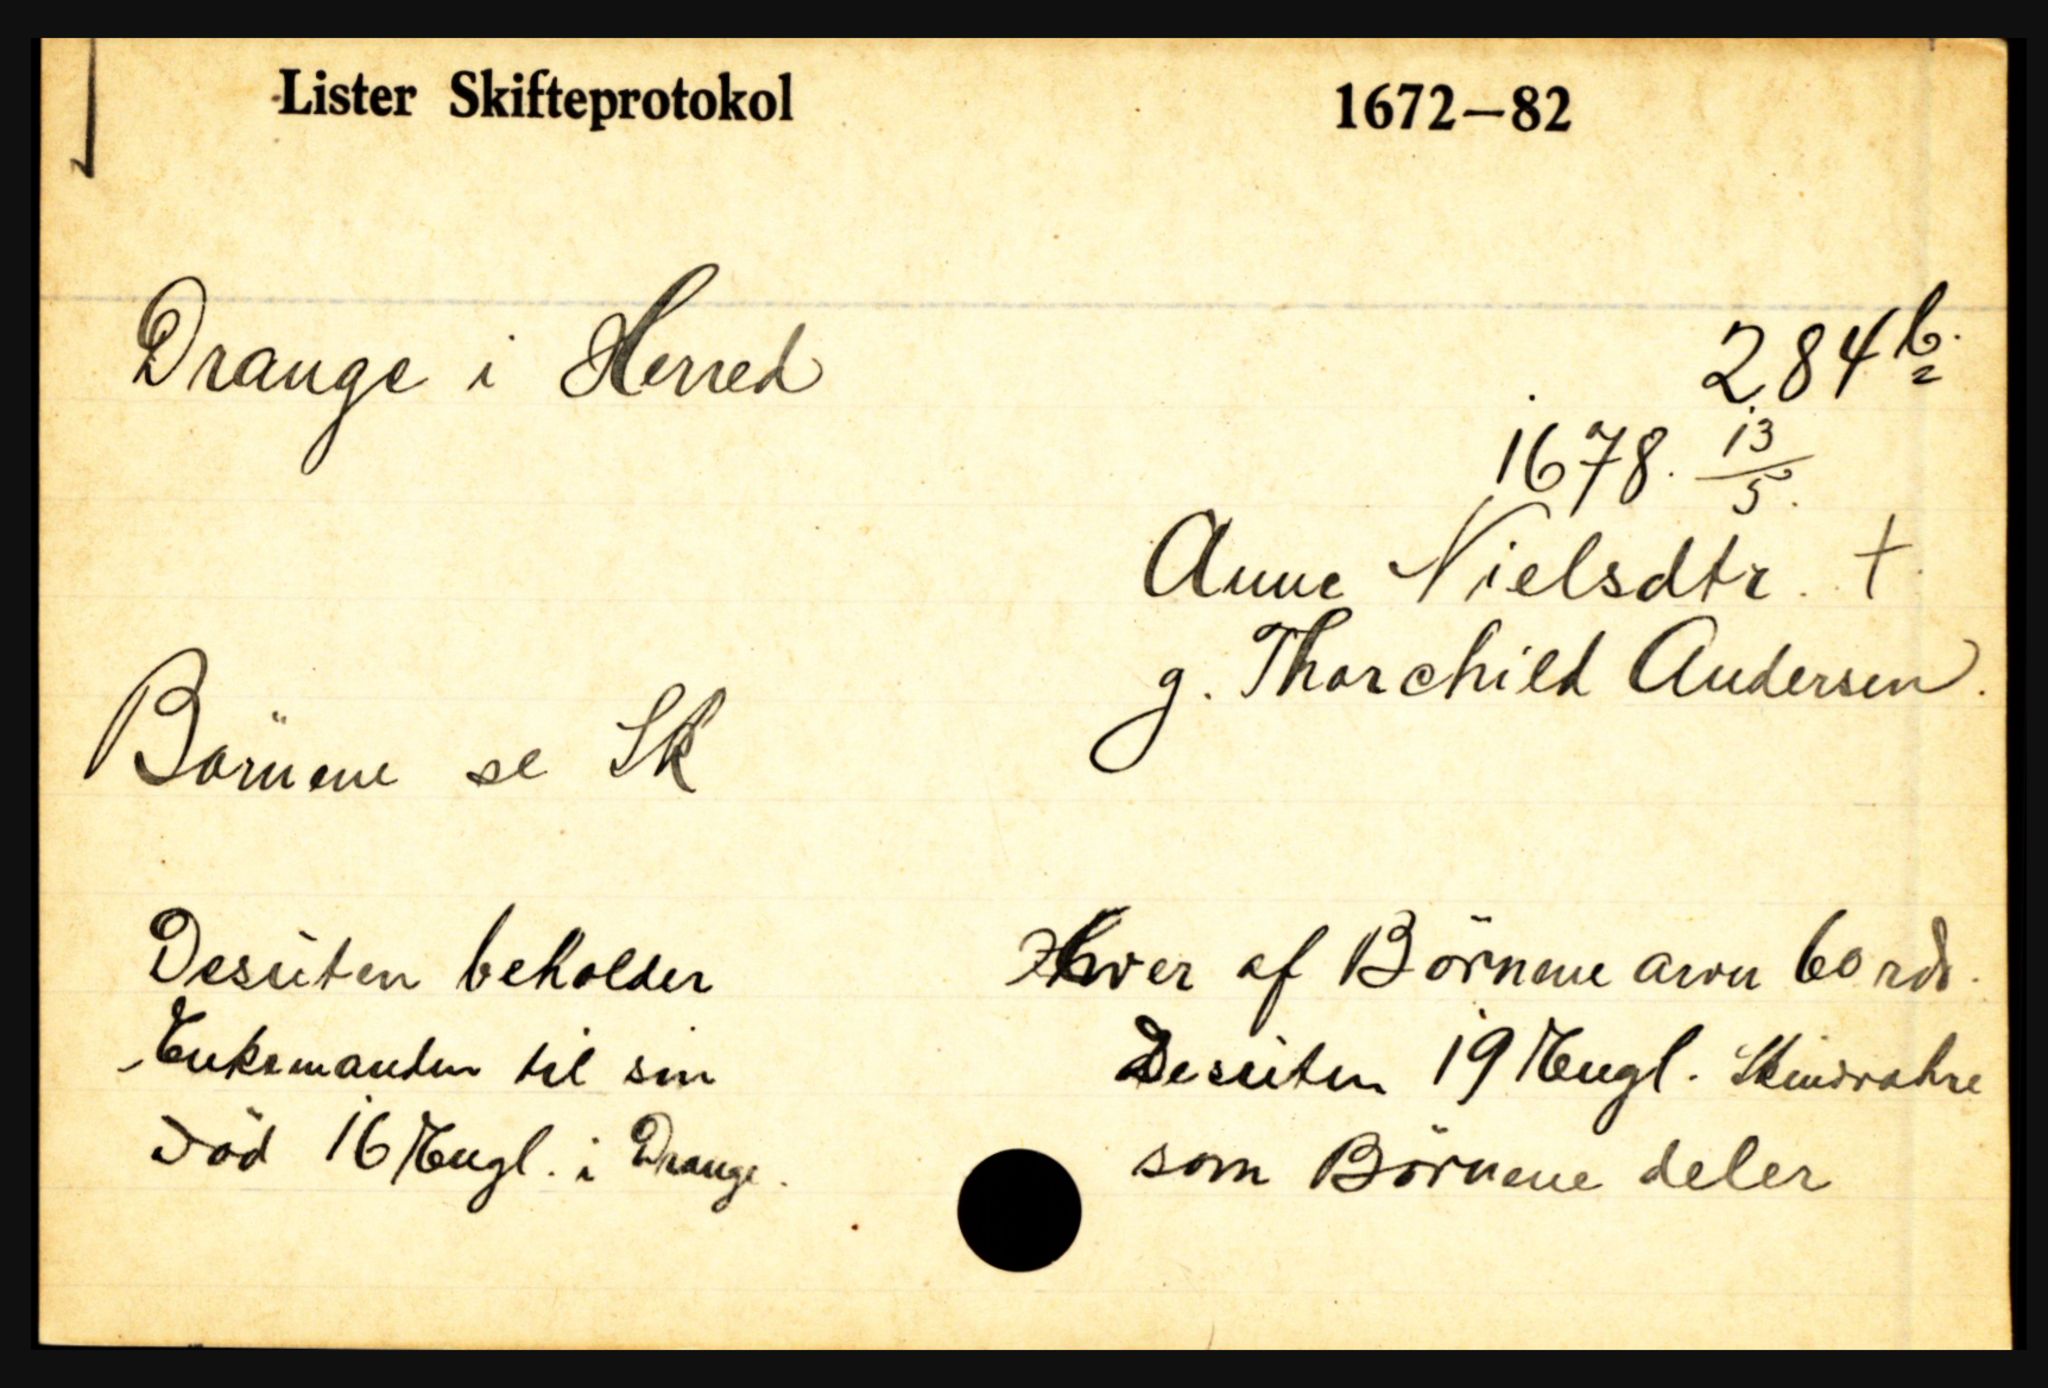 Lister Skifteprotokol 1672—82
Drange i Herred
284 b.
1678. 13/5.
Anne Nielsdtr. †.
g. Thorchild Andersen.
Börnene se Sk
Desuten beholder
Enkemanden til sin
Död 16 Engl. i Drange.
Hver af Börnene arver 60 rdr.
Desuten 19 Engl. Skindvahre
som Börnene deler